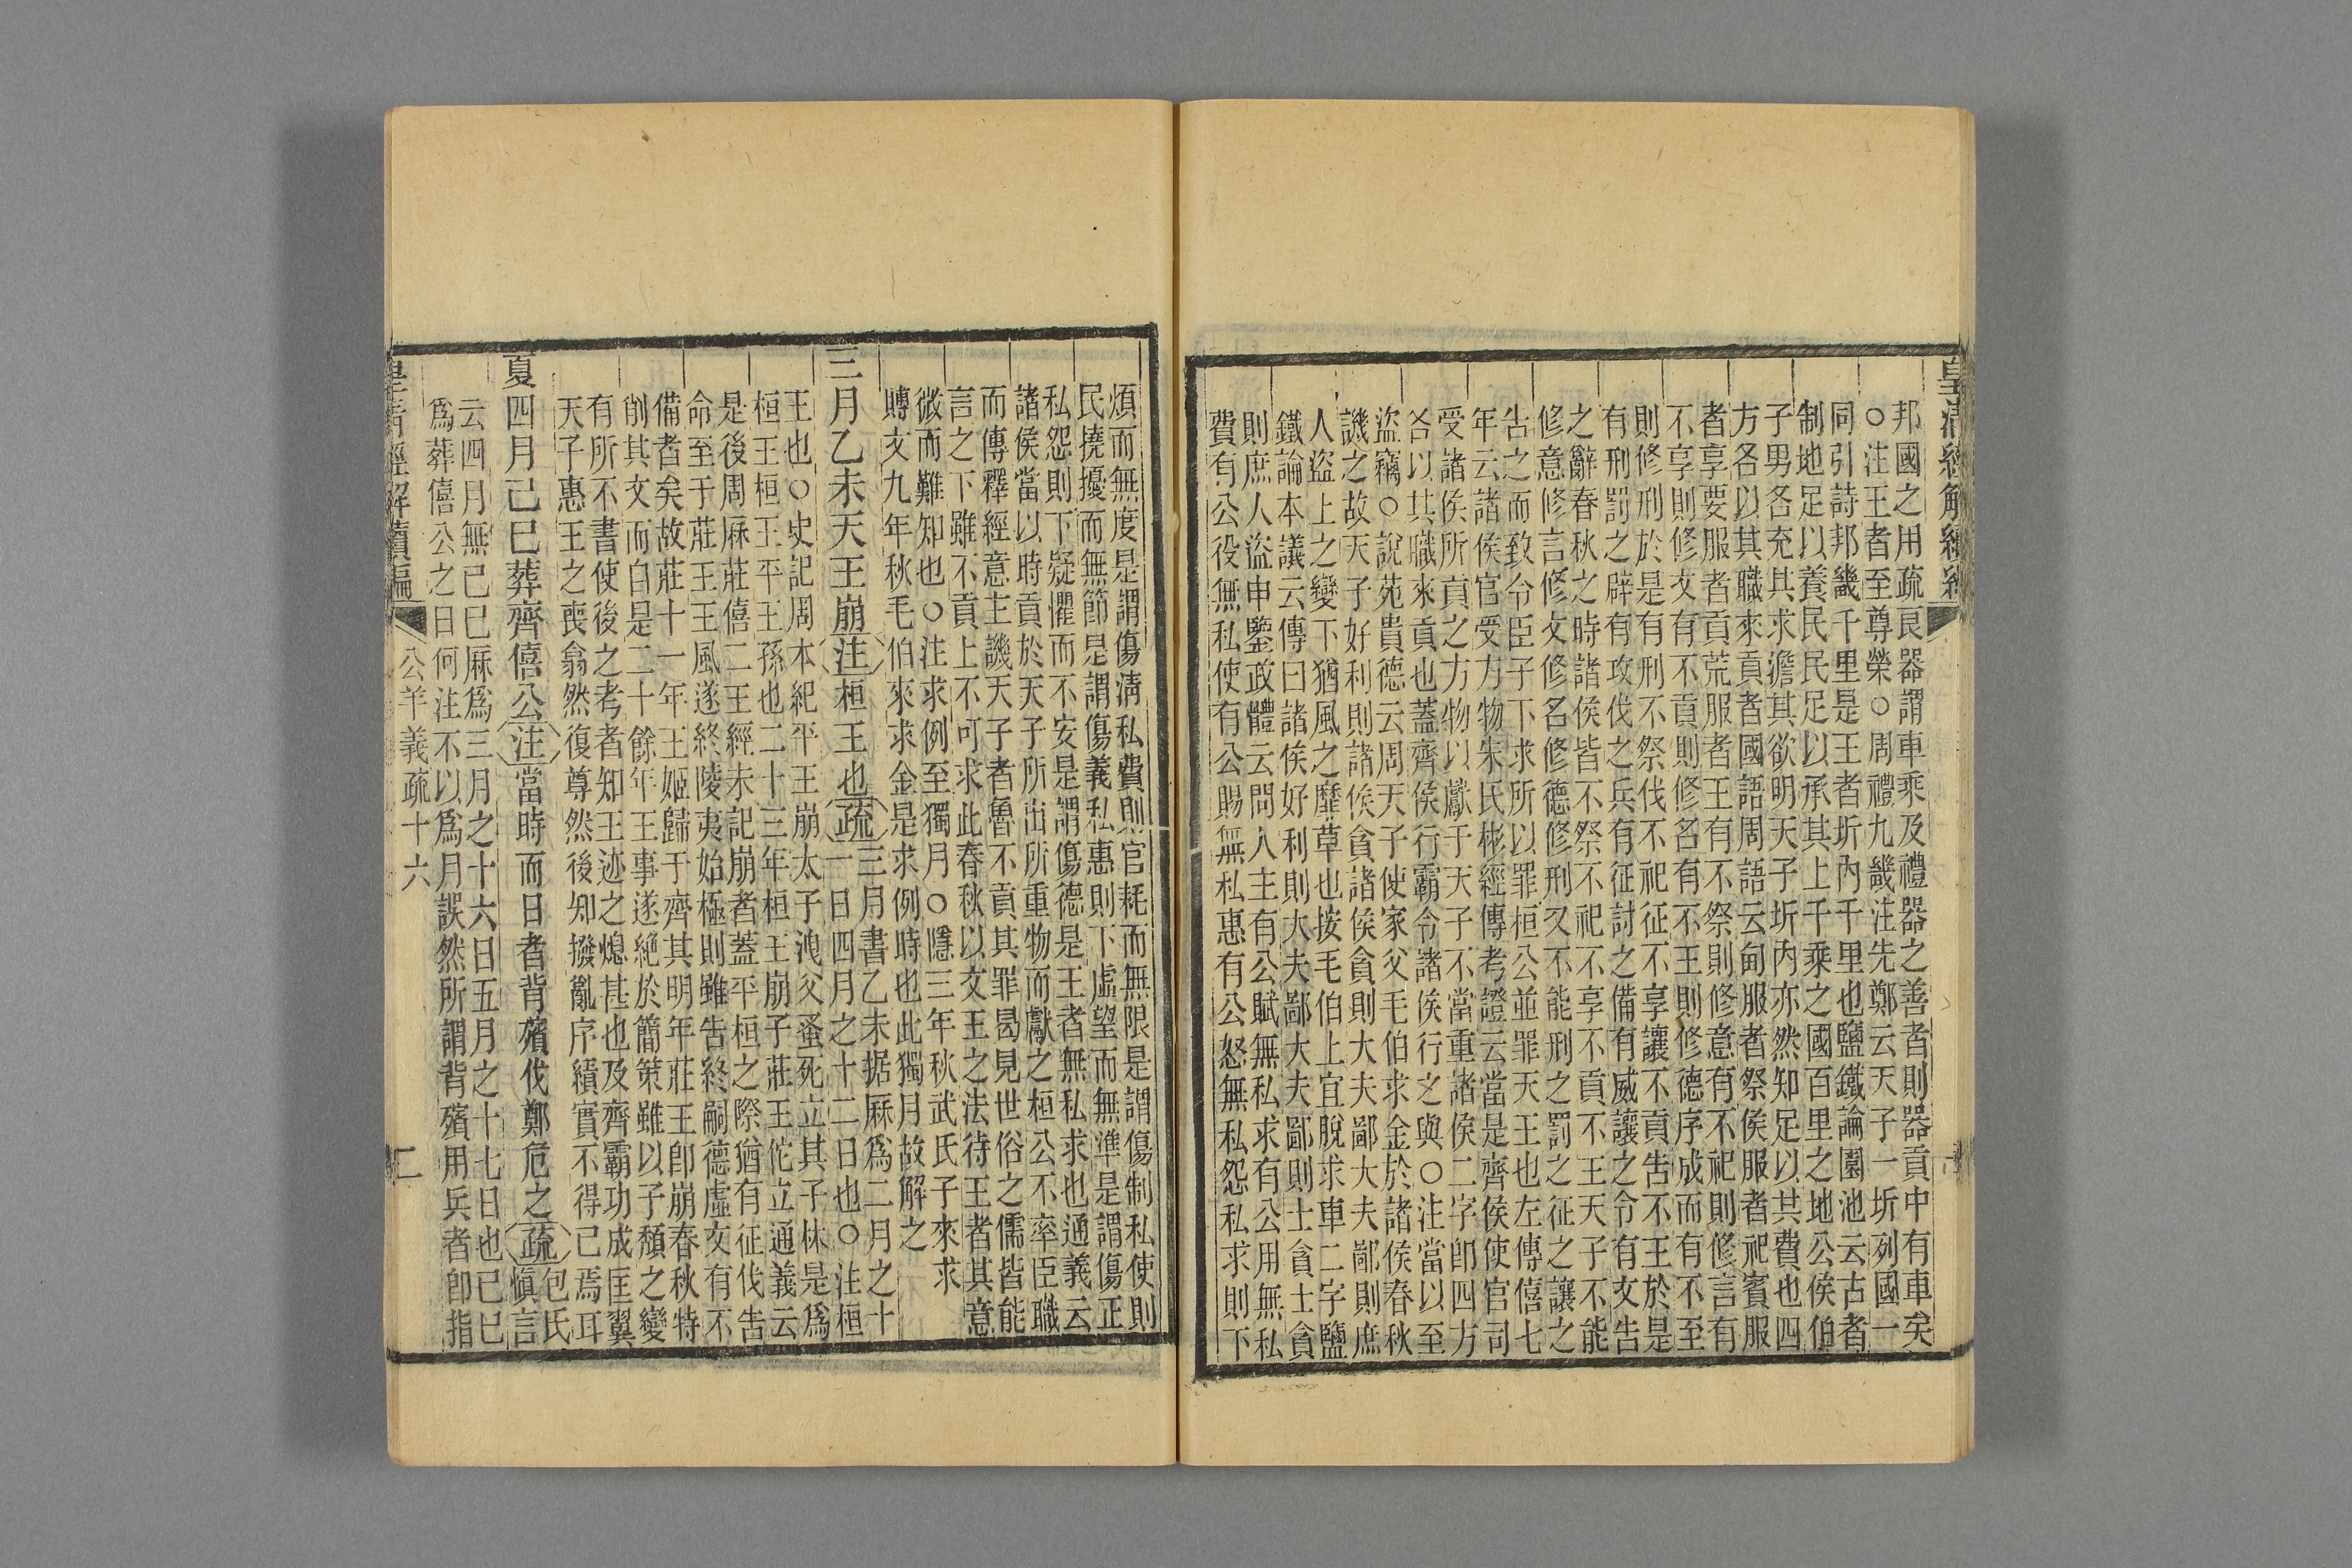 皇清經解續編
邦國之用疏良器謂車乘及禮器之善者則器貢中有車矣
○注王者至尊榮○周禮九畿注先鄭云天子一圻列國一
同引詩邦畿千里是王者圻內千里也鹽鐵論園池云古者
制地足以養民民足以承其上千乘之國百里之地公侯伯
子男各充其求澹其欲明天子圻內亦然知足以其費也四
方各以其職來貢者國語周語云甸服者祭侯服者祀賓服
者享要服者貢荒服者王有不祭則修意有不祀則修言有
不享則修文有不貢則修名有不王則修德序成而有不至
則修刑於是有刑不祭伐不祀征不享讓不貢告不王於是
有刑罰之辟有攻伐之兵有征討之備有威讓之令有文告
之辭春秋之時諸侯皆不祭不祀不享不貢不王天子不能
修意修言修文修名修德修刑又不能刑之罰之征之讓之
告之而致令臣子下求所以罪桓公並罪天王也左傳僖七
年云諸侯官受方物朱氏彬經傳考證云當是齊侯使官司
受諸侯所貢之方物以獻于天子不當重諸侯二字卽四方
各以其職來貢也蓋齊侯行霸令諸侯行之與○注當以至
盜竊○說苑貴德云周天子使家父毛伯求金於諸侯春秋
譏之故天子好利則諸侯貪諸侯貪則大夫鄙大夫鄙則庶
人盜上之變下猶風之靡草也按毛伯上宜脫求車二字鹽
鐵論本議云傳曰諸侯好利則大夫鄙大夫鄙則士貪士貪
則庶人盜申鑒政體云問人主有公賦無私求有公用無私
費有公役無私使有公賜無私惠有公怒無私怨私求則下
煩而無度是謂傷清私費則官耗而無限是謂傷制私使則
民撓擾而無節是謂傷義私惠則下虛望而無準是謂傷正
私怨則下疑懼而不安是謂傷德是王者無私求也通義云
諸侯當以時貢於天子所出所重物而獻之桓公不率臣職
而傳釋經意主譏天子者魯不貢其罪曷見世俗之儒皆能
言之下雖不貢上不可求此春秋以文王之法待王者其意
微而難知也○注求例至獨月○隱三年秋武氏子來求
賻文九年秋毛伯來求金是求例時也此獨月故解之
三月乙未天王崩注桓王也疏三月書乙未据厤爲二月之十
一日四月之十二日也○注桓
王也○史記周本紀平王崩太子洩父蚤死立其子林是爲
桓王桓王平王孫也二十三年桓王崩子莊王佗立通義云
是後周厤莊僖二王經未記崩者蓋平桓之際猶有征伐告
命至于莊王王風遂終陵夷始極則雖告終嗣德虛文有不
備者矣故莊十一年王姬歸于齊其明年莊王卽崩春秋特
削其文而自是二十餘年王事遂絕於簡策雖以子頹之變
有所不書使後之考者知王迹之熄甚也及齊霸功成匡翼
天子惠王之喪翕然復尊然後知撥亂序績實不得已焉耳
夏四月己巳葬齊僖公注當時而日者背殯伐鄭危之疏包氏
愼言
云四月無己巳厤爲三月之十六日五月之十七日也己巳
爲葬僖公之日何注不以爲月誤然所謂背殯用兵者卽指
皇清經解續編
公羊義疏十六
二